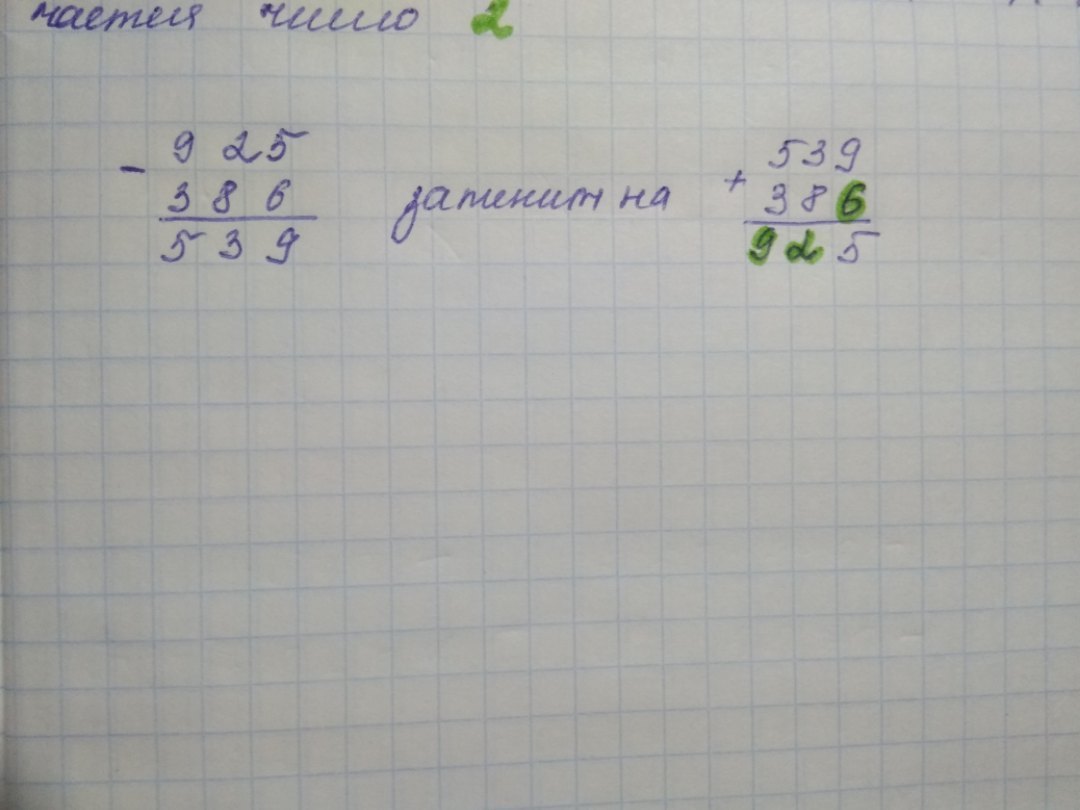 чается число 2
- 925
386
539
заменит на
+ 539
386
925